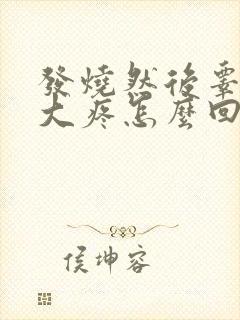 發燒然後睾
大疼怎麼回
侯坤容